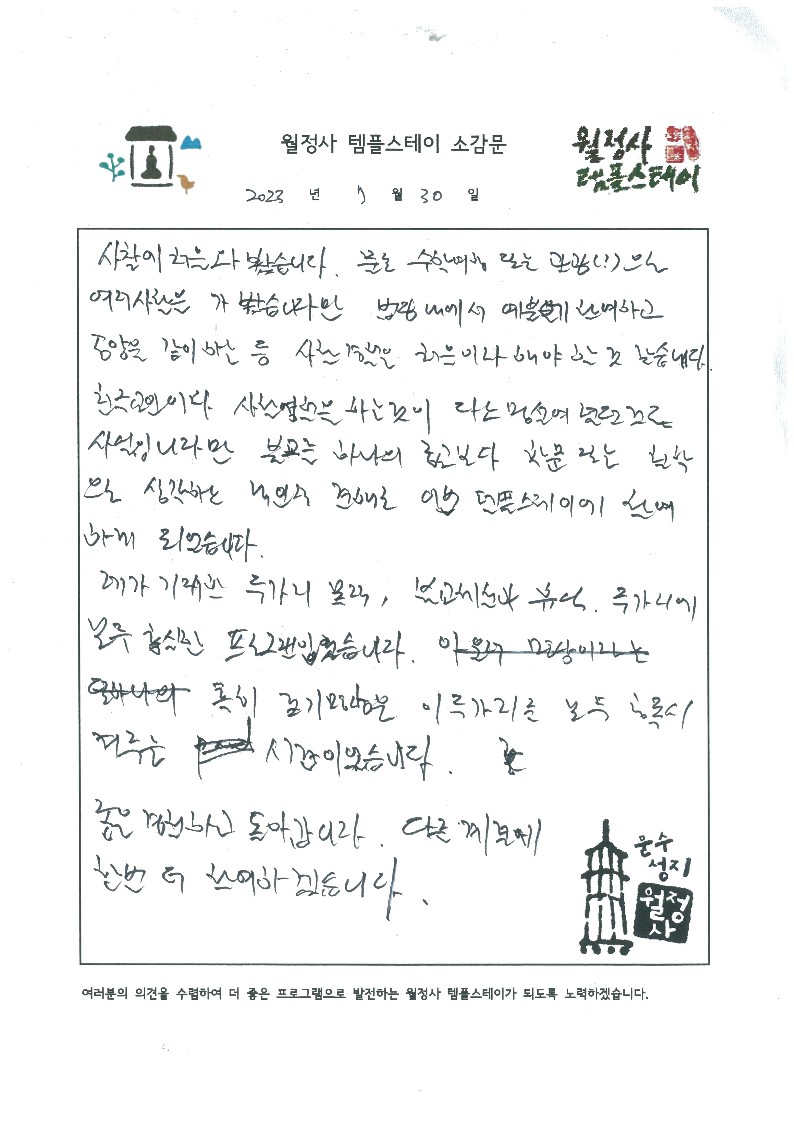 월정사 템플스테이 소감문
월정사
템플스테이
2023 년 7 월 30 일
사찰에 처음 와 봤습니다. 물론 수학여행 또는 관광(?)으로
여러사찰을 가 봤습니다만 법당 내에서 예불에 참여하고
공양을 같이 하는 등 사찰 경험은 처음이라 해야 할 것 같습니다.
천주교인이라 사찰 을 하는것이 다소
사실입니다만 불교는 하나의 종교보다 학문 또는 철학
으로 생각하는 개인적 견해로 이번 템플스테이에 참여
하게 되었습니다.
제가 기대한 두가지 , 휴식. 두가지에
모두 충실한 프로그램이었습니다. 아울러 명상이라는
또하나의 특히 걷기명상은 이 두가지를 모두 충족시
켜주는 시간이었습니다.
좋은 경험하고 돌아갑니다. 다른 계절에
한번 더 참여하겠습니다.
문수
성지
월정
사
여러분의 의견을 수렴하여 더 좋은 프로그램으로 발전하는 월정사 템플스테이가 되도록 노력하겠습니다.